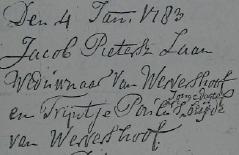 Den 4 Jan. 1783
Jacob Pietersz Laan
Weduwnaar van Wervershoof
en Trijntje Jonge dogter
van Wervershoof